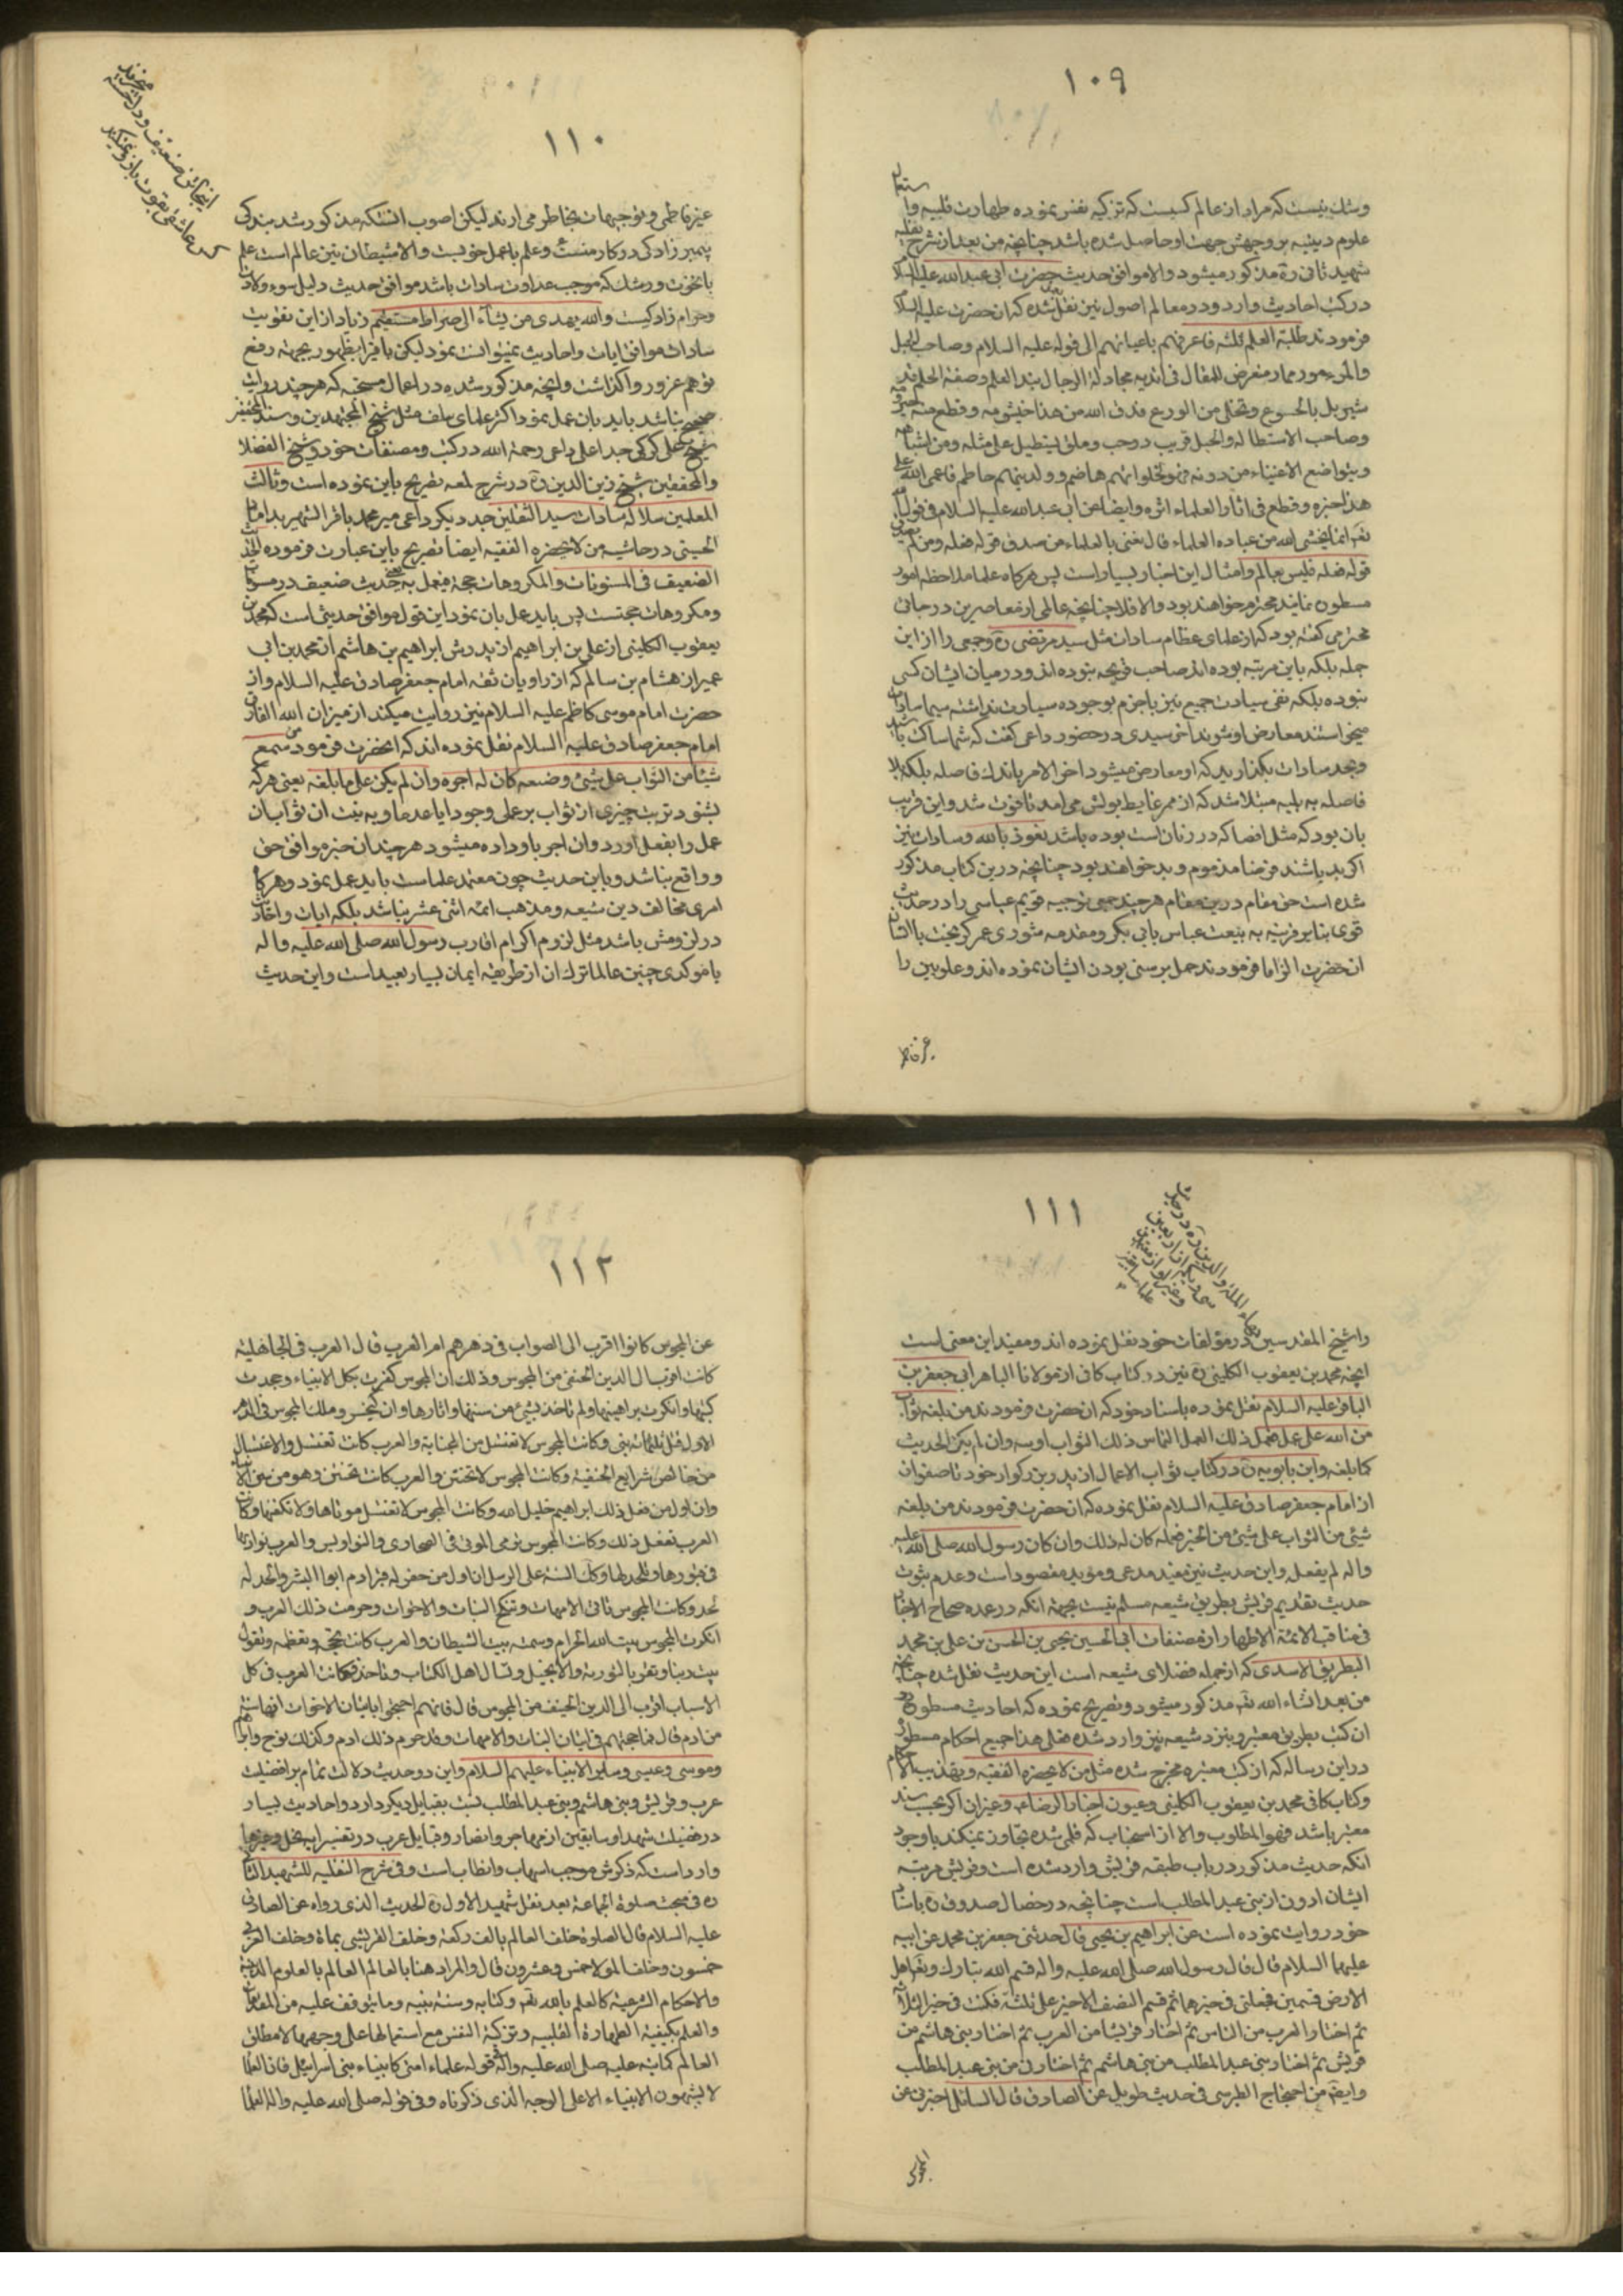 ١٠٩
وشك نيست كه مراد از عالم كسيست كه تزكيه نفس نموده طهارت قلبيه و استعمال
علوم دينيه بر وجهش جهت او حاصل شده باشد چنانچه من بعد از شرح نفليه
شهيد ثانى ره مذكور ميشود والا موافق حديث حضرت ابى عبد الله عليه السلام
در كتب احاديث وارد و در معالم اصول نيز نقل شده كه ان حضرت عليه السلام
فرمودند طلبة العلم ثلثه فاعرفهم باعيانهم الى قوله عليه السلام وصاحب الجهل
والمراء موذ ممار متعرض للمقال فى اندية الرجال بتذاكر العلم وصفة الحلم قد
تسربل بالخشوع وتخلى من الورع فدق الله من هذا خيشومه وقطع منه حيزومه
وصاحب الاستطالة والختل ذو خب وملق يستطيل على مثله من اشباهه
ويتواضع للاغنياء من دونه فهو لحلوائهم هاضم ولدينهم حاطم فاعمى الله على
هذا خبره وقطع من اثار العلماء اثره وايضا عن ابى عبد الله عليه السلام فى قول الله
تعم انما يخشى الله من عباده العلماء قال يعنى بالعلماء من صدق قوله فعله ومن لم يصدق
قوله فعله فليس بعالم وامثال اين اخبار بسيار است پس هرگاه علما ملاحظه امور
مسطوره نمايند محترم خواهند بود والا فلا چنانچه عالمى از معاصرين در جائى
محترمى گفته بود كه از علماى عظام سادات مثل سيد مرتضى ره وجمعى را از اين
جمله بلكه باين مرتبه بوده اند صاحب قريحه نبوده اند و در ميان ايشان كسى
نبوده بلكه نفى سيادت جميع نيز با جزم بوجود سيادت نداشته سيما سادات
ميخواستند معارض او شوند اخر سيدى در حضور داعى گفت كه شما ساكت باشيد
وبجد سادات بگذاريد كه او معارض ميشود اخر الامر باندك فاصله بلكه بلا
فاصله به بليه مبتلا شد كه از ممر غايط بولش مى امد تا فوت شد و اين قريب
بان بود كه مثل افضا كه در زنان است بوده باشد نعوذ بالله و سادات نيز
اگر بد باشند فرضا مذموم و بد خواهند بود چنانچه درين كتاب مذكور
شده است حق مقام درين مقام هر چند جمعى توجيه تقويم عباسى را در حديث
قوى بنا بر قرينه به بيعت عباس بابى بكر ومقدمه مشورى عمر كه بحث با ايشان
ان حضرت الزاما فرمودند حمل بر سنى بودن ايشان نموده اند و علويين را
غير فاطمى
١١٠
غير فاطمى و توجيهات بخاطر مى ارند ليكن اصوب انستكه مذكور شد بندگى
پيمبر زادگى در كار منست و علم با عمل خوبست والا شيطان نيز عالم است علم
با نخوت و رشك كه موجب عداوت سادات باشد موافق حديث دليل سوء ولادت
وحرام زادگيست والله يهدى من يشاء الى صراط مستقيم زياد از اين تقويت
سادات موافق ايات و احاديث نميتوانست نمود ليكن بافر ابظهور بجهته رفع
توهم غرور واگذاشت وانچه مذكور شده در اعمال مستحبه كه هر چند روايت
صحيح نباشد بايد بان عمل نمود اكثر علماى سلف مثل شيخ المجتهدين وسند المحققين
شيخ على كركى جد اعلى داعى رحمة الله در كتب ومصنفات خود وشيخ الفضلا
والمحققين شيخ زين الدين ره در شرح لمعه تصريح باين نموده است وثالث
المعلمين سلاله سادات سيد الثقلين جد ديگر داعى مير محمد باقر الشهير بداماد
الحسينى در حاشيه من لا يحضره الفقيه ايضا تصريح باين عبارت فرموده الحديث
الضعيف فى المسنونات والمكروهات حجة فيعمل به يعنى حديث ضعيف در مسنونات
ومكروهات حجتست پس بايد عمل بان نمود اين قول موافق حديثى است كه محمد بن
يعقوب الكلينى از على بن ابراهيم از پدرش ابراهيم بن هاشم از محمد بن ابى
عمير از هشام بن سالم كه از راويان ثقه امام جعفر صادق عليه السلام واز
حضرت امام موسى كاظم عليه السلام نيز روايت ميكند از ميزان الله الفارق
امام جعفر صادق عليه السلام نقل نموده اند كه انحضرت فرمود من سمع
شيئا من الثواب على شيئ وضعه كان له اجره وان لم يكن على ما بلغه يعنى هر كه
بشنود ترتب چيزى از ثواب بر عملى وجودا يا عدما و به نيت ان ثواب ان
عمل را بفعل اورد وان اجر باو داده ميشود هر چند ان خبر موافق حق
و واقع نباشد وباين حديث چون معتمد علماست بايد عمل نمود و هرگاه
امرى مخالف دين شيعه ومذهب ائمه اثنى عشر نباشد بلكه ايات و اخبار
در لزومش باشد مثل لزوم اكرام اقارب رسول الله صلى الله عليه واله
با موكدى چنين عالما ترك ان از طريقه ايمان بسيار بعيد است واين حديث
اينجا تن ضعيف و دل خسته ميخرند
كس عاشقى بقوت بازو نميكند
١١١
بهاء الملة والدين ره در حديث
سى و يكم از اربعين
وغير او از معتمدين
علما سابقين
را شيخ المقدسين در مؤلفات خود نقل نموده اند ومفيد اين معنى است
انچه محمد بن يعقوب الكلينى ره نيز در كتاب كافى از مولانا الباهر ابى جعفر بن
الباقر عليه السلام نقل نموده باسناد خود كه ان حضرت فرمودند من بلغه ثواب
من الله على عمل فعمل ذلك العمل التماس ذلك الثواب اوتيه وان لم يكن الحديث
كما بلغه وابن بابويه ره در كتاب ثواب الاعمال از پدر بزرگوار خود تا صفوان
از امام جعفر صادق عليه السلام نقل نموده كه ان حضرت فرمودند من بلغه
شيئ من الثواب على شيئ من الخير فعمله كان له ذلك وان كان رسول الله صلى الله عليه
واله لم يفعله واين حديث نيز مفيد مدعى ومويد مقصود است وعدم ثبوت
حديث تقديم قريش بطريق شيعه مسلم نيست بجهة انكه در عمده صحاح الاخبار
فى مناقب الائمة الاطهار از مصنفات ابى الحسين يحيى بن الحسن بن على بن محمد
البطريق الاسدى كه از جمله فضلاى شيعه است اين حديث نقل شده چنانچه
من بعد انشاء الله تعم مذكور ميشود و تصريح نموده كه احاديث مسطوره در
ان كتب بطريق معتبر و بنزد شيعه نيز وارد شده فعلى هذا جميع احكام مسطوره
در اين رساله كه از كتب معتبره مخرج شده مثل من لا يحضره الفقيه وتهذيب الاحكام
وكتاب كافى محمد بن يعقوب الكلينى وعيون اخبار الرضاء وغيران اگر بحسب سند
معتبر باشد فهو المطلوب والا از استحباب كه قلمى شده تجاوز نميكند باوجود
انكه حديث مذكور در باب طبقه قريش وارد شده است وقريش مرتبه
ايشان ادون از بنى عبد المطلب است چنانچه در خصال صدوق ره باسناد
خود روايت نموده است عن ابراهيم بن يحيى قال حدثنى جعفر بن محمد عن ابيه
عليهما السلام قال قال رسول الله صلى الله عليه واله قسم الله تبارك وتعالى اهل
الارض قسمين فجعلنى فى خيرهما ثم قسم النصف الاخير على ثلثة فكنت فى خير الثلاثة
ثم اختار العرب من الناس ثم اختار قريشا من العرب ثم اختار بنى هاشم من
قريش ثم اختار بنى عبد المطلب من بنى هاشم ثم اختارنى من بنى عبد المطلب
وايضم من احتجاج الطبرسى فى حديث طويل عن الصادق قال السائل اخبرنى عن
المجوس
١١٢
عن المجوس كانوا اقرب الى الصواب فى دهرهم ام العرب قال العرب فى الجاهلية
كانت اقرب ال الدين الحنفى من المجوس وذلك ان المجوس كفرت بكل الانبياء وجحدت
كتبها وانكرت براهينها ولم تاخذ بشيئ من سننها واثارها وان كيخسرو ملك المجوس فى الدهر
الاول قتل ثلثمائة نبى وكانت المجوس لا تغتسل من الجنابة والعرب كانت تغتسل والاغتسال
من خالص شرايع الحنفية وكانت المجوس لا تختتن والعرب كانت تختتن وهو من سنن الانبياء
وان اول من فعل ذلك ابراهيم خليل الله وكانت المجوس لا تغسل موتاها ولا تكفنها وكانت
العرب تفعل ذلك وكانت المجوس ترمى الموتى فى الصحارى والنواويس والعرب تواريها
فى قبورها وتلحدلها وكذلك السنة على الرسل ان اول من حفر له قبر ادم ابوا البشر والحد له
لحد وكانت المجوس تاتى الامهات وتنكح البنات والاخوات وحرمت ذلك العرب و
انكرت المجوس بيت الله الحرام وسمته بيت الشيطان والعرب كانت تحجه وتعظمه وتقول
بيت ربنا وتقر بالتورية والانجيل وتسال اهل الكتاب وتاخذ وكانت العرب فى كل
الاسباب اقرب الى الدين الحنيف من المجوس قال فانهم احتجوا باتيان الاخوات انها سنة
من ادم قال فما حجتهم فى اتيان البنات والامهات وقد حرم ذلك ادم وكذلك نوح وابراهيم
وموسى وعيسى وساير الانبياء عليهم السلام واين دو حديث دلالت تمام بر افضليت
عرب و قريش وبنى هاشم وبنى عبد المطلب نسبت بقبايل ديگر دارد و احاديث بسيار
در فضيلت شهدا وسابقين از مهاجر وانصار وقبايل عرب در تفسير ايه نحل وغيرها
وارد است كه ذكرش موجب اسهاب واطناب است وفى شرح النفلية للشهيد الثانى
ره فى مبحث صلوة الجماعة بعد نقل شهيد الاول ره الحديث الذى رواه عن الصادق
عليه السلام قال الصلوة خلف العالم بالف ركعة وخلف القرشى بماة وخلف العربى
خمسون وخلف المولا خمس وعشرون قال والمراد هنا بالعالم العالم بالعلوم الدينية
والاحكام الشرعية كالعلم بالله تعم وكتابه وسنة نبيه وما يتوقف عليه من المعارف
والعلم بكيفية الطهارة القلبيه وتزكية النفس مع استعمالها على وجهها لا مطلق
العالم كما نبه عليه صلى الله عليه واله فى قوله علماء امتى كانبياء بنى اسرائيل فان العلما
لا يشبهون الانبياء الا على الوجه الذى ذكرناه وفى قوله صلى الله عليه واله العلما